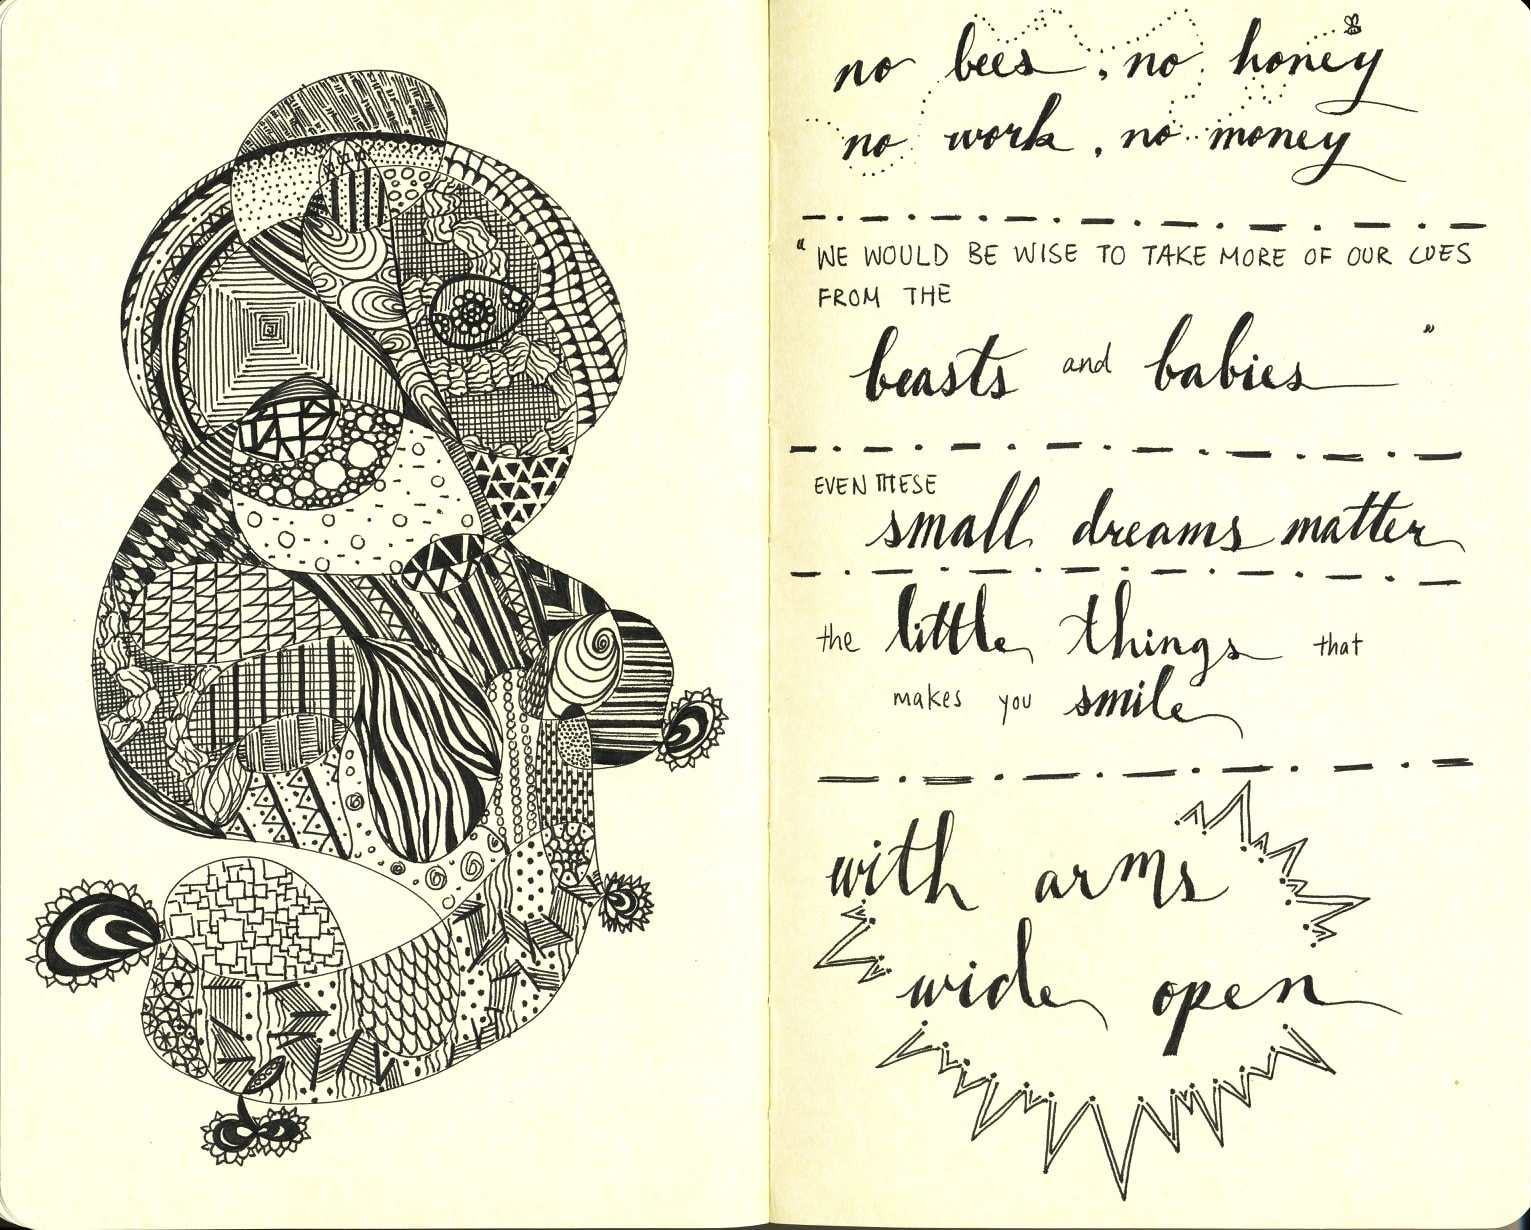 no bees, no honey
no work, no money
"WE WOULD BE WISE TO TAKE MORE OF OUR CUES
FROM THE
beasts and babies"
EVEN THESE
small dreams matter
the little things that
makes you smile
with arms
wide open